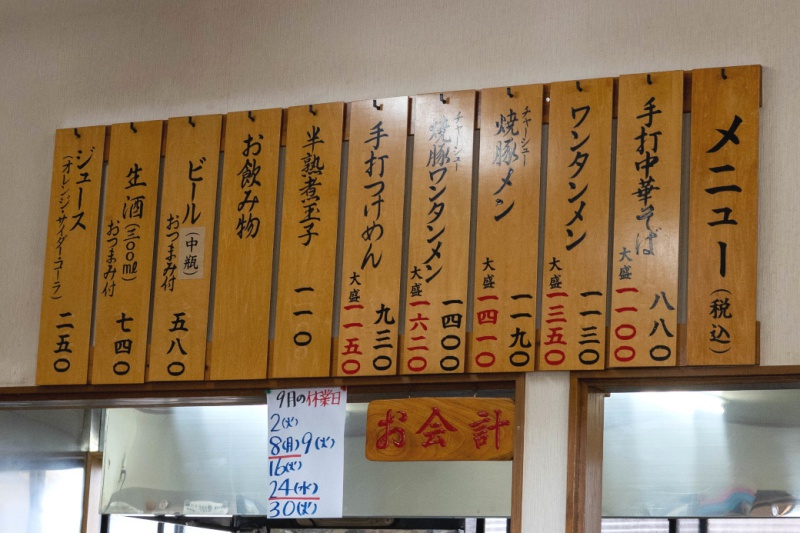 メニュー(税込)
手打中華そば 八八〇
大盛 一一〇〇
ワンタンメン 一一三〇
大盛 一三五〇
チャーシュー
焼豚メン 一一九〇
大盛 一四一〇
チャーシュー
焼豚ワンタンメン 一四〇〇
大盛 一六二〇
手打つけめん 九三〇
大盛 一一五〇
半熟煮玉子 一一〇
お飲み物
ビール(中瓶)
おつまみ付 五八〇
生酒(三〇〇㎖)
おつまみ付 七四〇
ジュース
(オレンジ・サイダー・コーラ) 二五〇
9月の休業日
2(火)
8(月)9(火)
16(火)
24(水)
30(火)
お会計